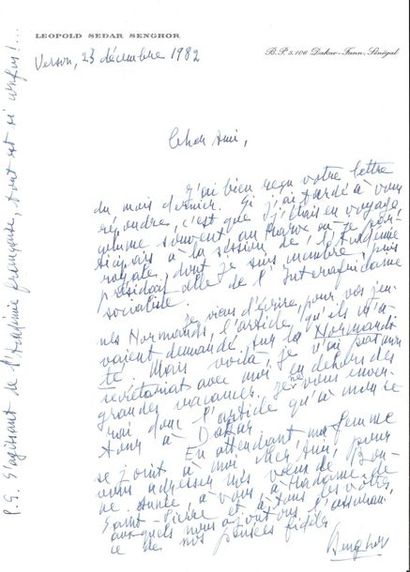 LEOPOLD SEDAR SENGHOR
B.P. 5.106 Dakar-Fann, Sénégal
Verson, 23 décembre 1982
Cher Ami,
J'ai bien reçu votre lettre
du mois dernier. Si j'ai tardé à vous
répondre, c'est que j'étais en voyage,
comme souvent, au Maroc où je par-
ticipais à la session de l'Académie
royale, dont je suis membre, puis
présidais celle de l'Interafricaine
socialiste.
Je viens d'écrire, pour vos jeu-
nes Normands, l'article qu'ils m'a-
vaient demandé sur la Normandi
té. Mais voilà, je n'ai pas mon
secrétariat avec moi en dehors des
grandes vacances. Je ne vous enver-
rai donc l'article qu'à mon re
tour à Dakar.
En attendant, ma femme
se joint à moi, cher Ami, pour
vous adresser nos vœux de Bon-
ne Année à vous, à Madame de
Saint-Pierre et à tous les vôtres,
auxquels nous ajoutons l'assuran-
ce de nos pensées fidèles
Senghor
P.S. S'agissant de l'Académie française, tout est si confus !...